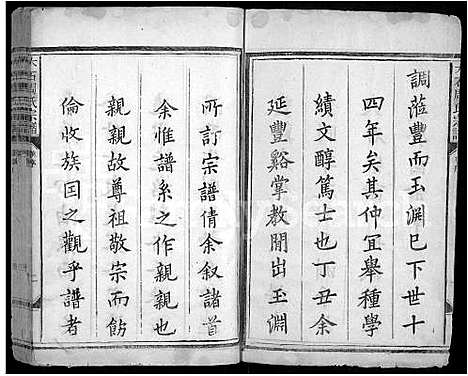 調蒞豐而玉淵已下世十
四年矣其仲冝舉種學
績文醇篤士也丁丑余
延豐谿掌教關出玉淵
所訂宗譜倩余叙諸首
余惟譜系之作親親也
親親故尊祖敬宗而飭
倫收族囯之觀乎譜者